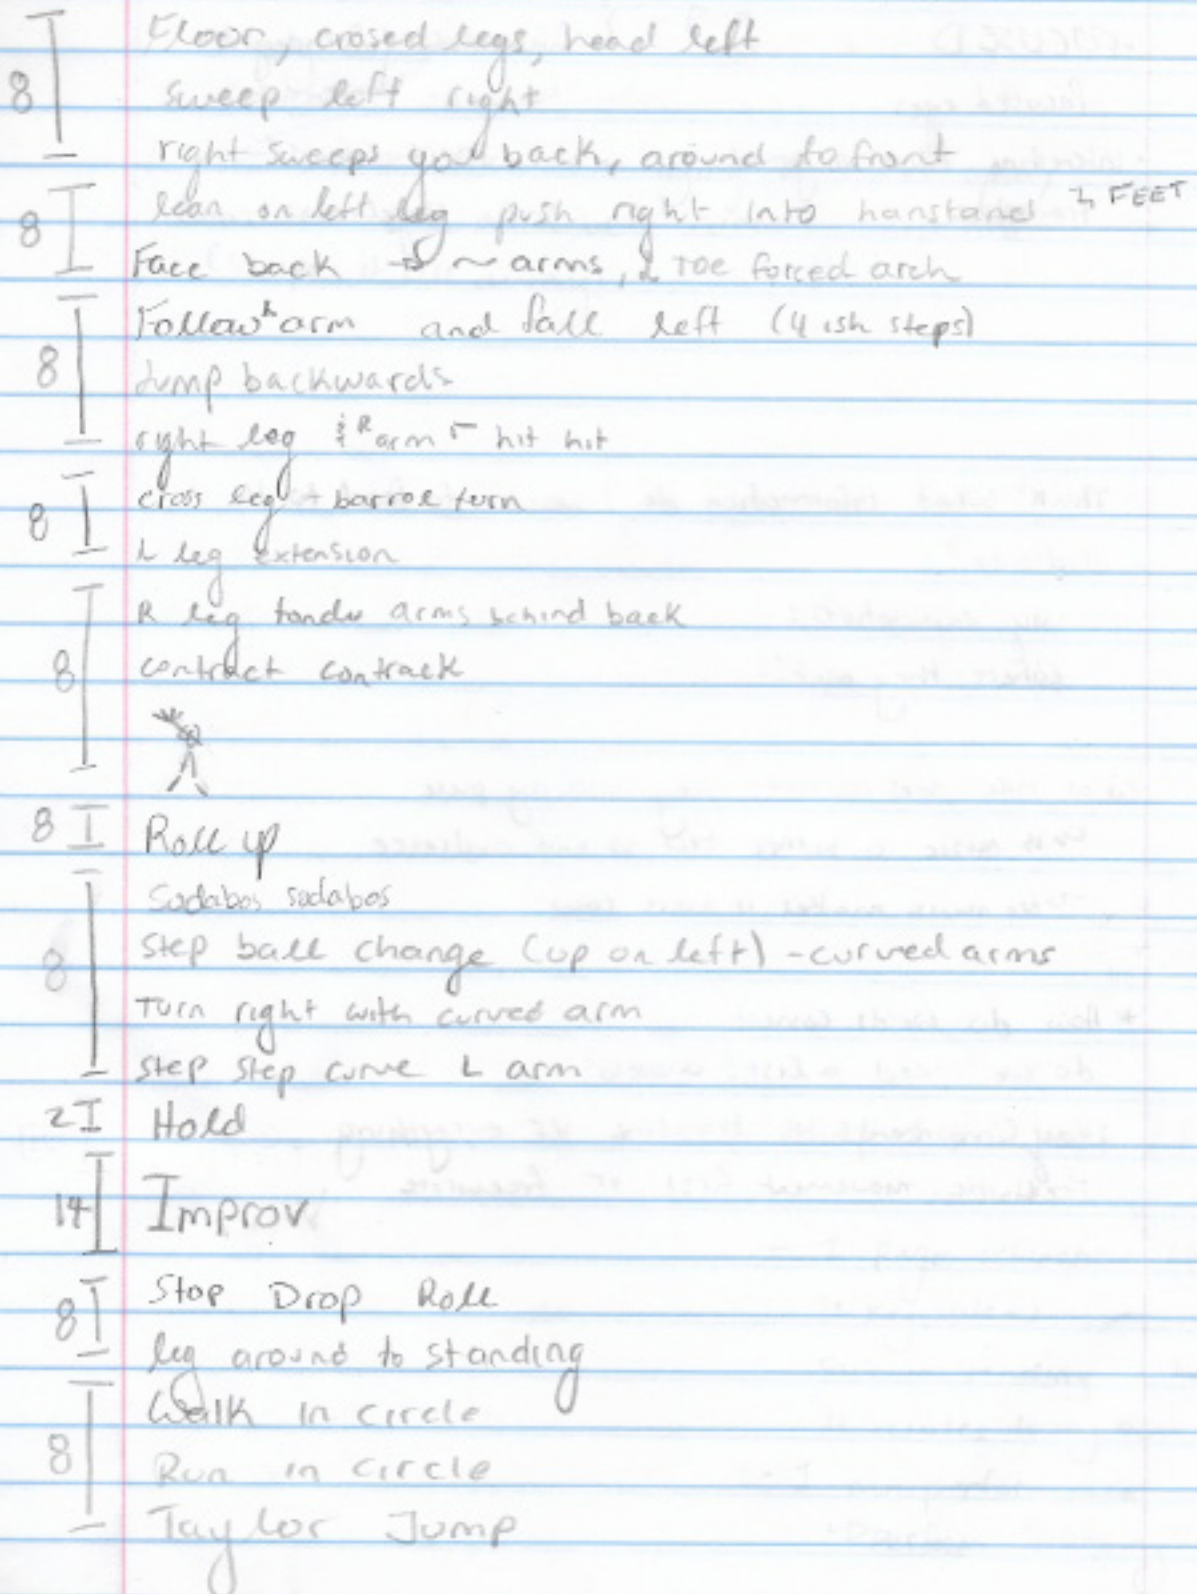 Floor, crosed legs, head left
8 sweep left right
right sweeps you back, around to front
8 lean on left leg push right into hanstand ↳ FEET
Face back ~ arms, & TOE forced arch
Follow R arm and fall left (4 ish steps)
8 Jump backwards
right leg & R arm hit hit
8 cross leg + barroe turn
L leg extension
R leg tondu arms behind back
8 contract contrack
8 Roll up
Sodabos sodabos
8 step ball change (up on left) - curved arms
Turn right with curved arm
step step curve L arm
2 Hold
14 Improv
8 Stop Drop Roll
leg around to standing
Walk in circle
8 Run in circle
Taylor Jump